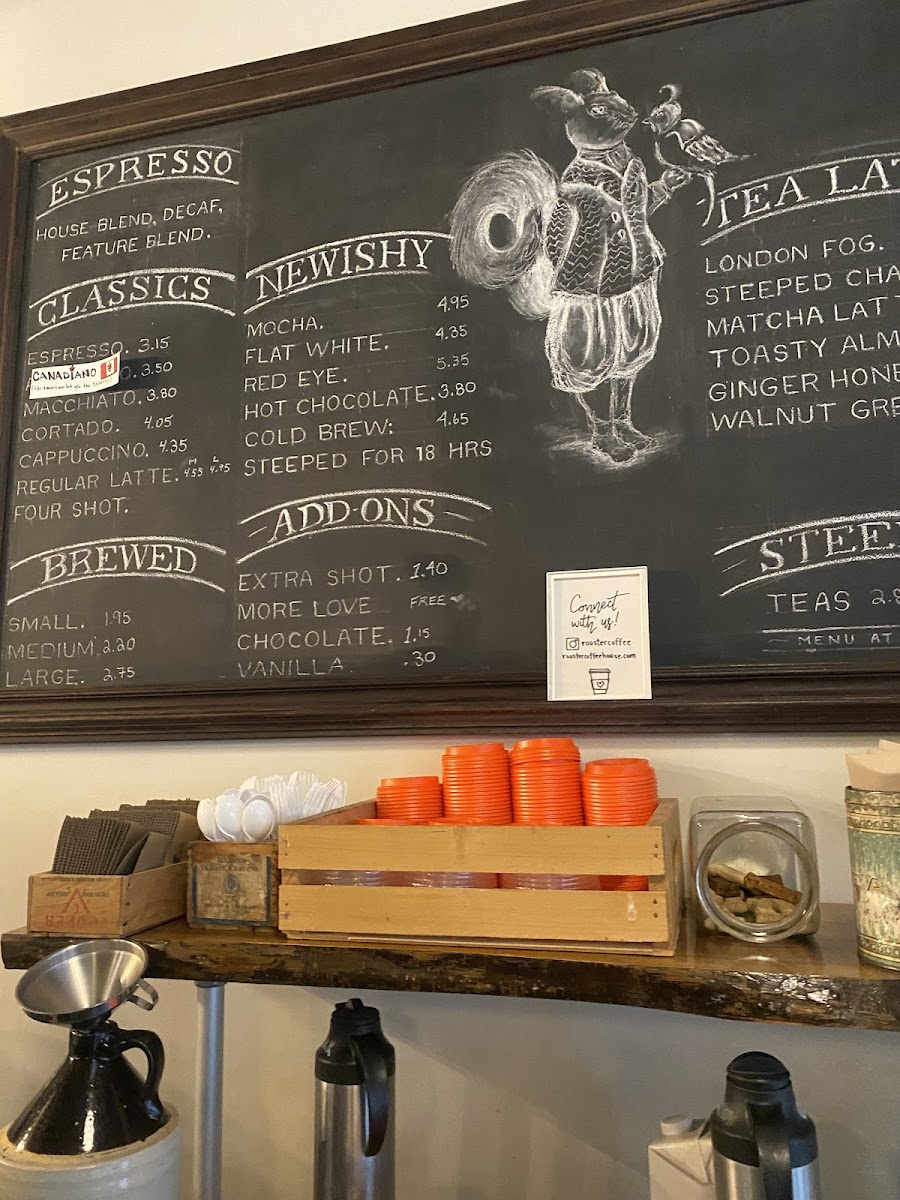 ESPRESSO
HOUSE BLEND, DECAF,
FEATURE BLEND.
CLASSICS
ESPRESSO. 3.15
CANADIANO
O. 3.50
MACCHIATO. 3.80
CORTADO. 4.05
CAPPUCCINO. 4.35
M L
REGULAR LATTE. 4.55 4.95
FOUR SHOT.
BREWED
SMALL. 1.95
MEDIUM. 2.20
LARGE. 2.75
NEWISHY
MOCHA. 4.95
FLAT WHITE. 4.35
RED EYE. 5.35
HOT CHOCOLATE. 3.80
COLD BREW: 4.65
STEEPED FOR 18 HRS
ADD-ONS
EXTRA SHOT. 1.40
MORE LOVE FREE
CHOCOLATE. 1.15
VANILLA. .30
Connect
with us!
roostercoffee
roostercoffeehouse.com
TEA LAT
LONDON FOG.
STEEPED CHA
MATCHA LATT
TOASTY ALM
GINGER HONE
WALNUT GRE
STEE
TEAS 2.8
MENU AT